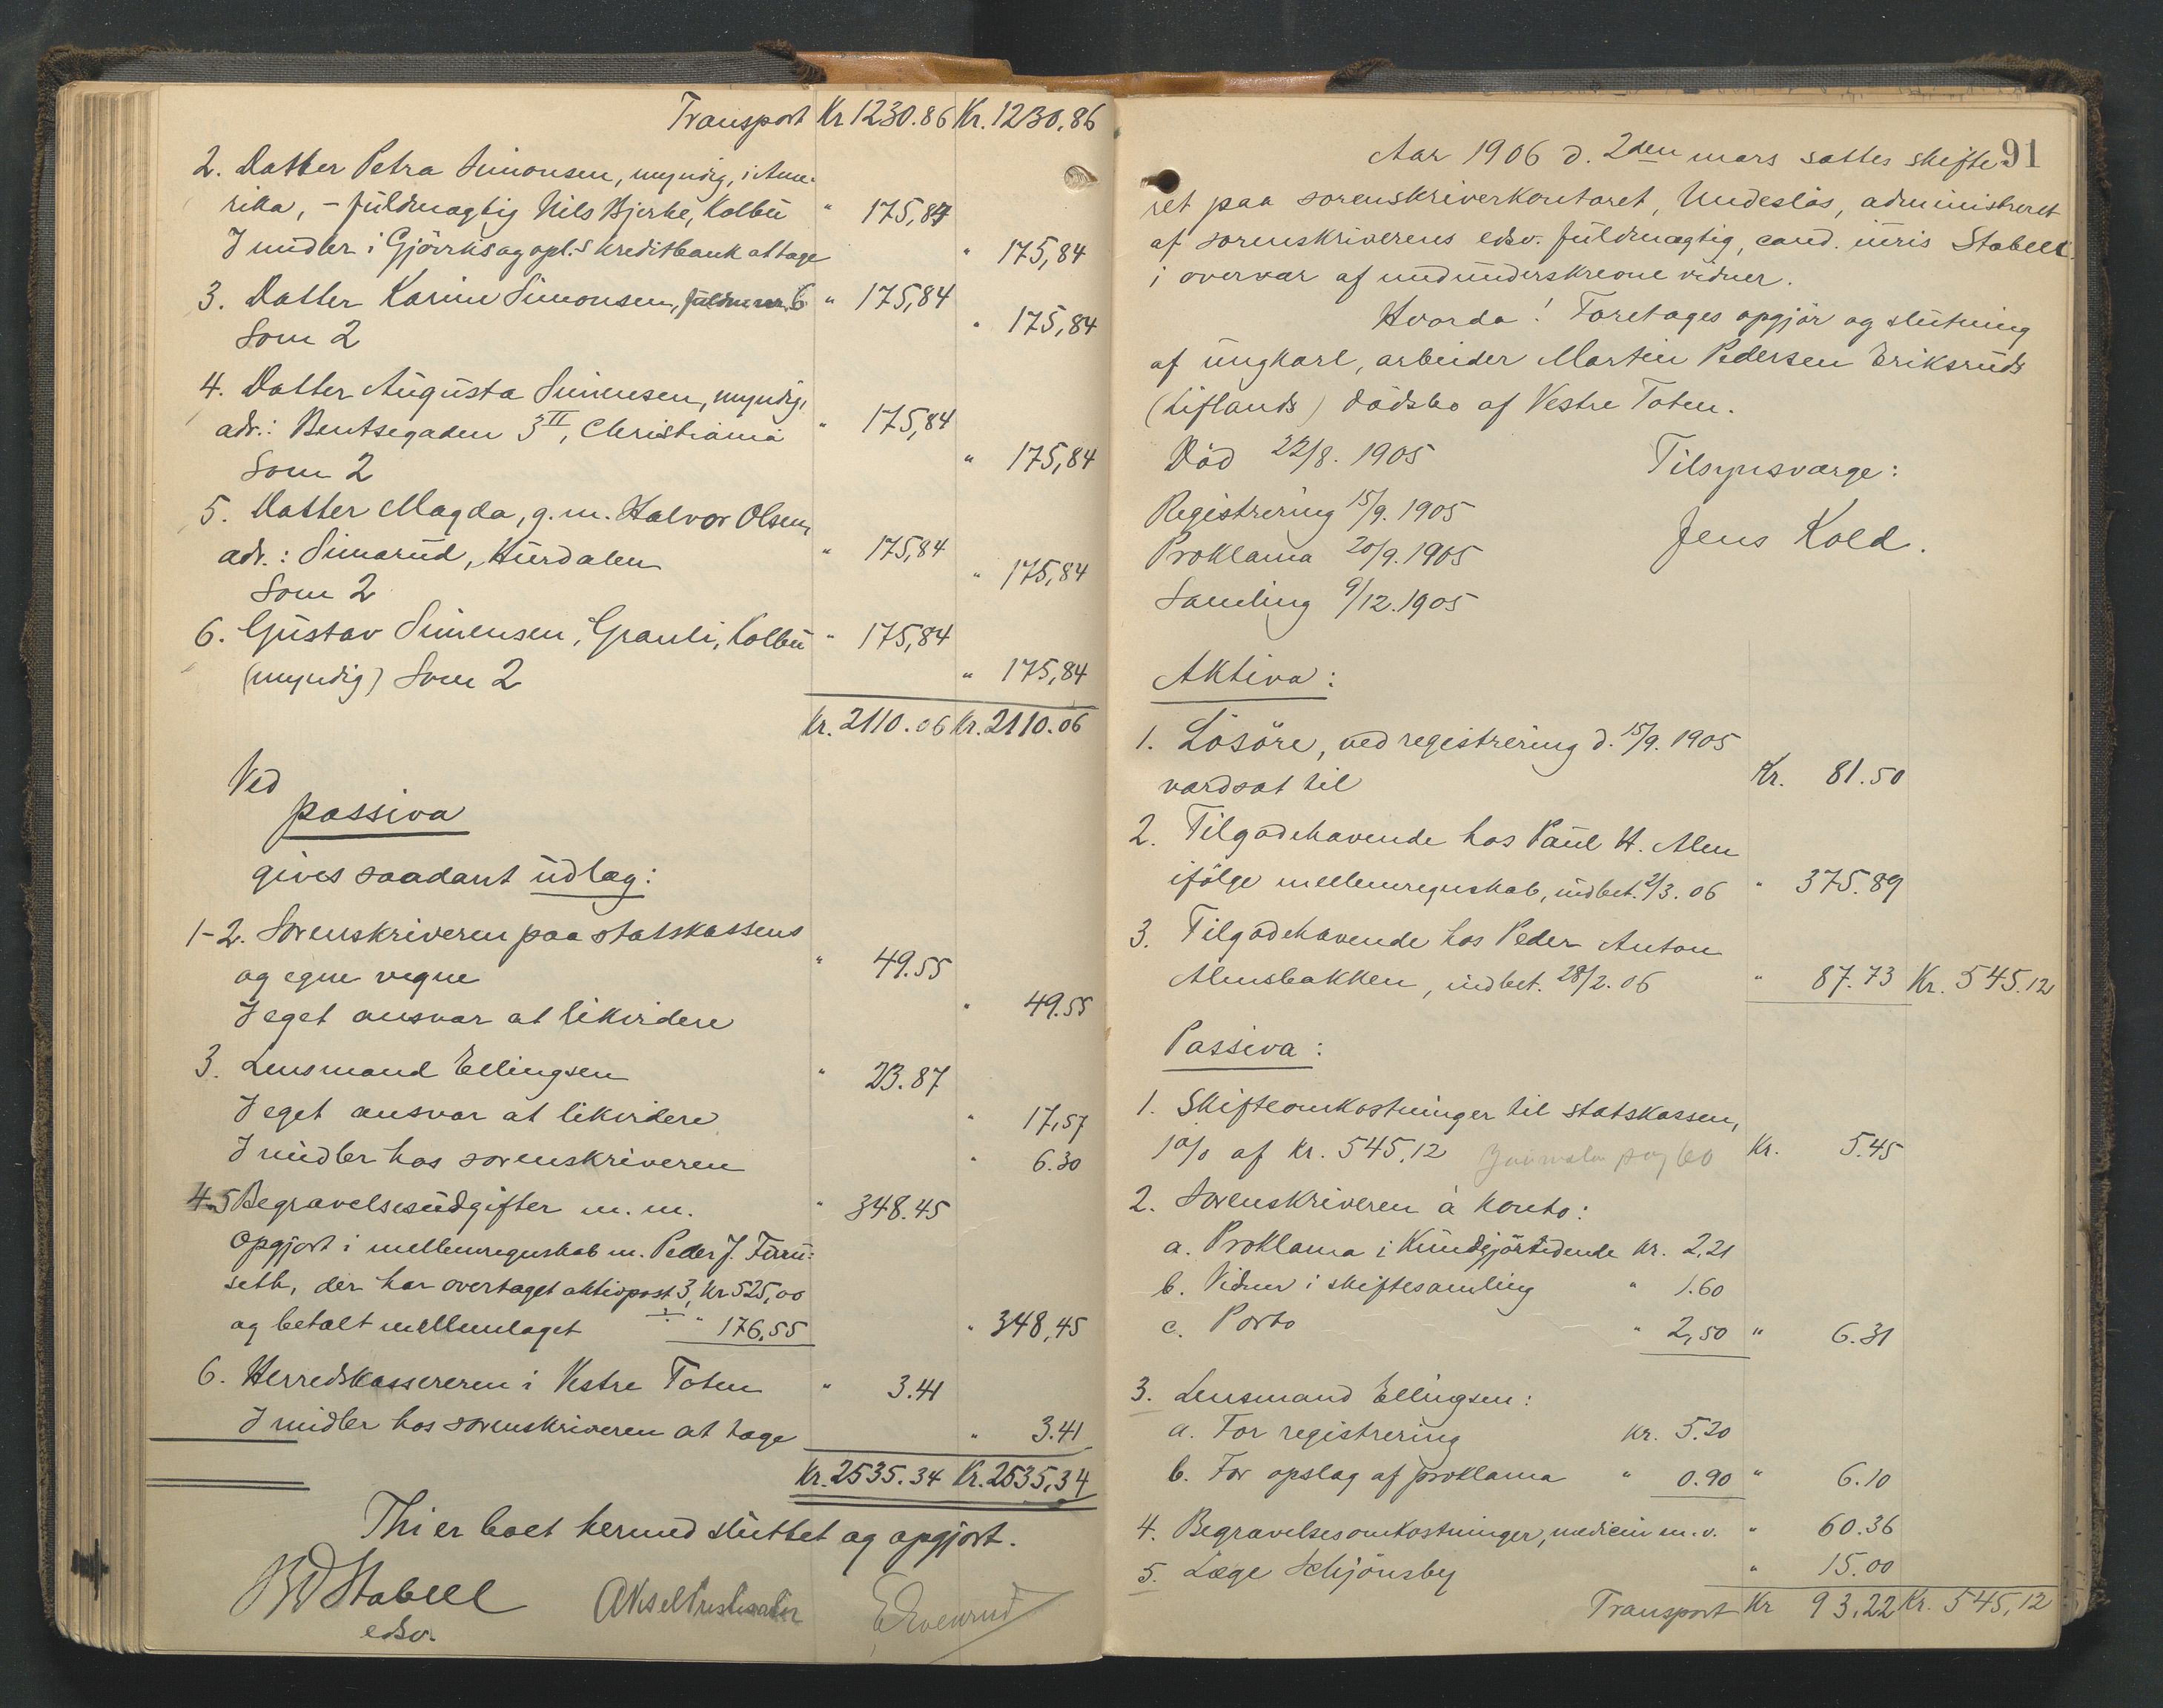 Transport Kr 1230.86 Kr. 1230.86
2. Datter Petra Simonsen, myndig, i Ame-
rika, - fuldmægtig Nils Bjerke, Kolbu " 175,84
I midler i Gjøviks og opl.s kreditbank at tage " 175,84
3. Datter Karine Simonsen, fuldm. nr. 6 " 175,84
Som 2 " 175,84
4. Datter Augusta Simensen, myndig,
adr.: Bentsegaden 3 II, Christiania " 175,84
Som 2 " 175,84
5. Datter Magda, g. m. Halvor Olsen,
adr.: Simarud, Hurdalen " 175,84
Som 2 " 175,84
6. Gustav Simensen, Granli, Kolbu " 175,84
(myndig) Som 2 " 175,84
Kr. 2110.06 Kr. 2110.06
Ved
passiva
gives saadant udlæg:
1-2. Sorenskriveren paa statskassens
og egne vegne " 49.55
I eget ansvar at likvidere " 49.55
3. Lensmand Ellingsen " 23.87
I eget ansvar at likvidere " 17,57
I midler hos sorenskriveren " 6.30
4-5 Begravelsesudgifter m. m. " 348.45
Opgjort i mellemregnskab m. Peder J.
seth, der har overtaget aktivpost 3, Kr 525,00
og betalt mellemlaget ÷ " 176.55 " 348,45
6. Herredskassereren i Vestre Toten " 3.41
I midler hos sorenskriveren at tage " 3.41
Kr. 2535.34 Kr. 2535,34
Thi er boet hermed sluttet og opgjort.
Stabell
edsv.
91
Aar 1906 d. 2den mars sattes skifte-
ret paa sorenskriverkontoret, Undesløs, administreret
af sorenskriverens edsv. fuldmægtig, cand. iuris Stabell
i overvær af medunderskrevne vidner.
Hvorda! Foretages opgjør og slutning
af ungkarl, arbeider Martin Pedersen Eriksruds
(Liflands) dødsbo af Vestre Toten.
Død 22/8. 1905 Tilsynsværge:
Registrering 15/9. 1905
Jens Kold.
Proklama 20/9. 1905
Samling 9/12. 1905
Aktiva:
1. Løsøre, ved registrering d. 15/9. 1905
værdsat til Kr. 81.50
2. Tilgodehavende hos Paul H. Alm
ifølge mellemregnskab, indbet. 2/3. 06 " 375.89
3. Tilgodehavende hos Peder Anton
Almsbakken, indbet. 28/2. 06 " 87.73 Kr. 545.12
Passiva:
1. Skifteomkostninger til statskassen,
1 % af Kr. 545.12 Kr. 5.45
2. Sorenskriveren à konto:
a. Proklama i Kundgjørtidende Kr. 2,21
b. Vidner i skiftesamling " 1.60
c. Porto " 2,50 " 6.31
3. Lensmand Ellingsen:
a. For registrering Kr. 5.20
b. For opslag af proklama " 0.90 " 6.10
4. Begravelsesomkostninger, medicin m. v. " 60.36
5. Læge Schjønsby " 15.00
Transport Kr 93,22 Kr. 545,12